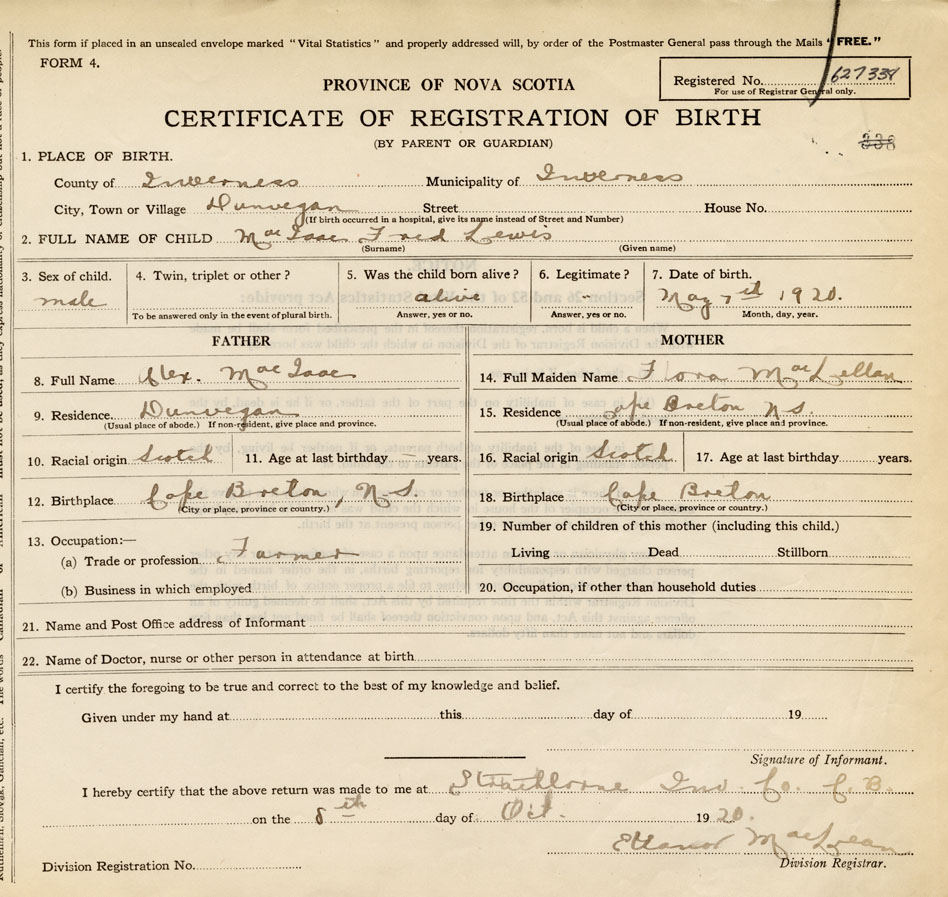 This form if placed in an unsealed envelope marked "Vital Statistics" and properly addressed will, by order of the Postmaster General pass through the Mails "FREE."
FORM 4.
Registered No. 627338
For use of Registrar General only.
PROVINCE OF NOVA SCOTIA
CERTIFICATE OF REGISTRATION OF BIRTH
(BY PARENT OR GUARDIAN)
338
1. PLACE OF BIRTH.
County of Inverness Municipality of Inverness
City, Town or Village Dunvegan Street House No.
(If birth occurred in a hospital, give its name instead of Street and Number)
2. FULL NAME OF CHILD MacIsaac Fred Lewis
(Surname) (Given name)
3. Sex of child. 4. Twin, triplet or other? 5. Was the child born alive? 6. Legitimate? 7. Date of birth.
male alive - May 7th 1920.
To be answered only in the event of plural birth. Answer, yes or no. Answer, yes or no. Month, day, year.
FATHER MOTHER
8. Full Name Alex. MacIsaac 14. Full Maiden Name Flora MacLellan
9. Residence. Dunvegan 15. Residence Cape Breton N.S.
(Usual place of abode.) If non-resident, give place and province. (Usual place of abode.) If non-resident, give place and province.
10. Racial origin Scotch 11. Age at last birthday years. 16. Racial origin Scotch 17. Age at last birthday years.
12. Birthplace Cape Breton, N.S. 18. Birthplace Cape Breton
(City or place, province or country.) (City or place, province or country.)
13. Occupation:— 19. Number of children of this mother (including this child.)
(a) Trade or profession. Farmer Living Dead Stillborn
(b) Business in which employed 20. Occupation, if other than household duties
21. Name and Post Office address of Informant
22. Name of Doctor, nurse or other person in attendance at birth
I certify the foregoing to be true and correct to the best of my knowledge and belief.
Given under my hand at this day of 19
Signature of Informant.
I hereby certify that the above return was made to me at Strathlorne Inv. Co. C.B.
on the 8th day of Oct. 1920.
Eleanor MacLean
Division Registration No. Division Registrar.